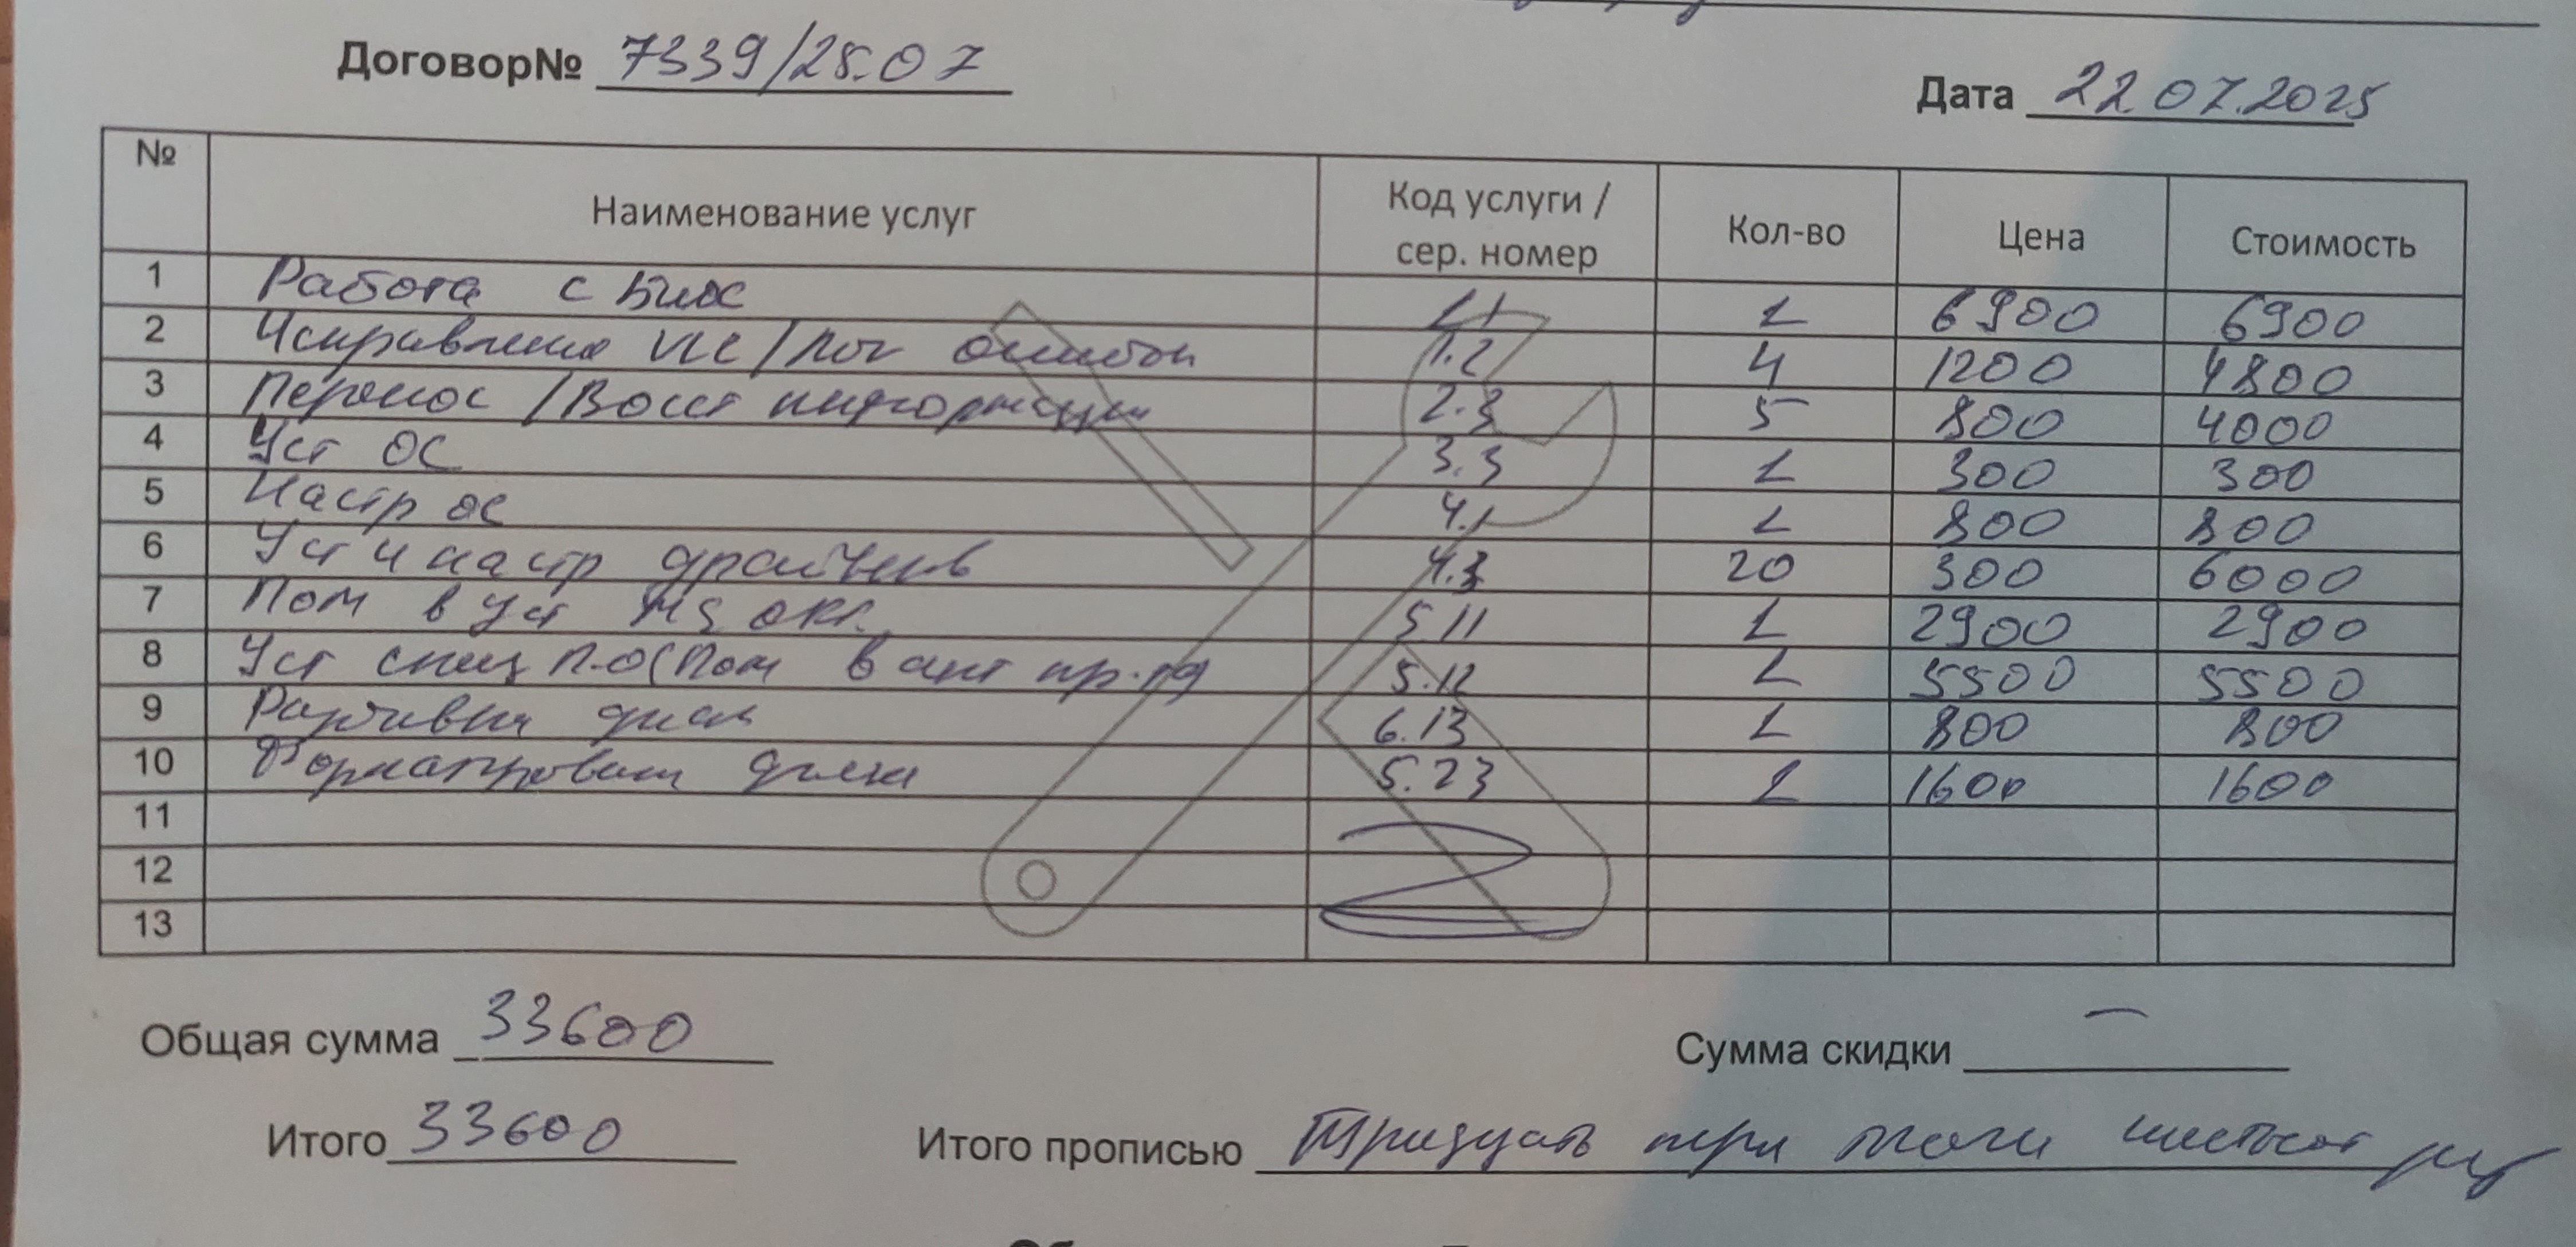 Договор№ 7339/25.07
Дата 22.07.2025
№ Наименование услуг Код услуги / сер. номер Кол-во Цена Стоимость
1 Работа с Биос 1.1 1 6900 6900
2 Исправление /лог ошибок 1.2 4 1200 4800
3 Перенос /Восст информации 2.3 5 800 4000
4 Уст ОС 3.3 1 300 300
5 Настр ос 4.1 1 800 800
6 Уст и настр драйверов 4.3 20 300 6000
7 Пом в уст MS 5.11 1 2900 2900
8 Уст спец П.О(Пом в акт 5.12 1 5500 5500
9 Разбивка диска 6.13 1 800 800
10 Форматирован диска 5.23 1 1600 1600
11
12
13
Общая сумма 33600
Сумма скидки —
Итого 33600
Итого прописью Тридцать три тысячи шестьсот руб